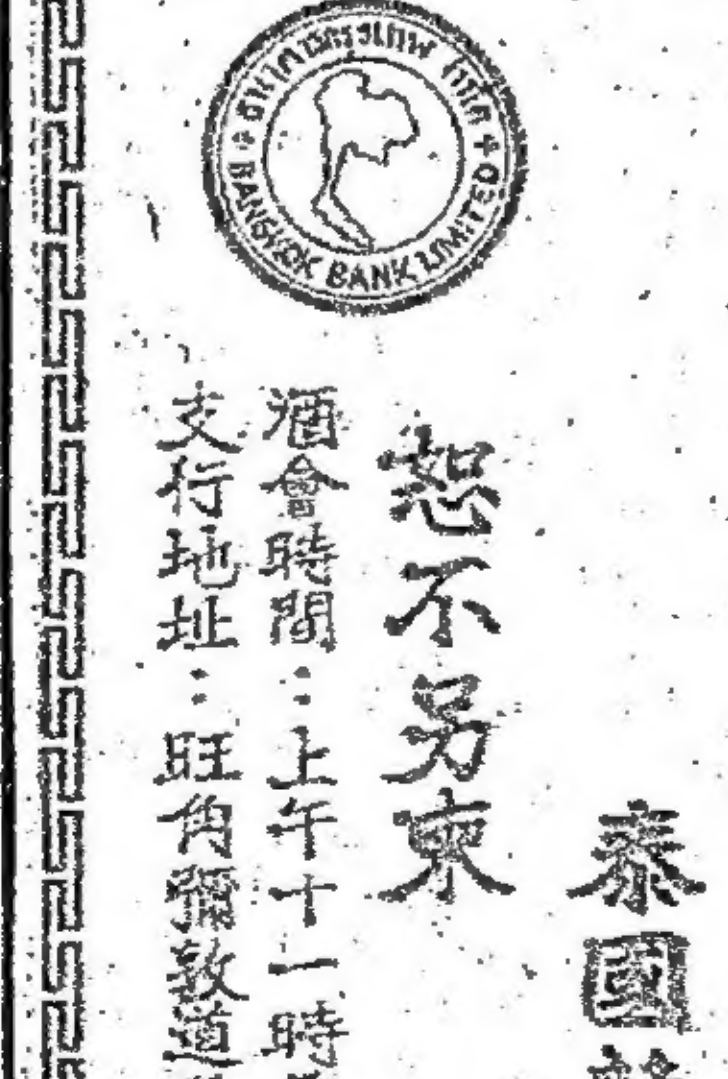 ธนาคารกรุงเทพ จำกัด
BANGKOK BANK LIMITED
泰國
恕不另柬
酒會時間：上午十一時
支行地址：旺角彌敦道